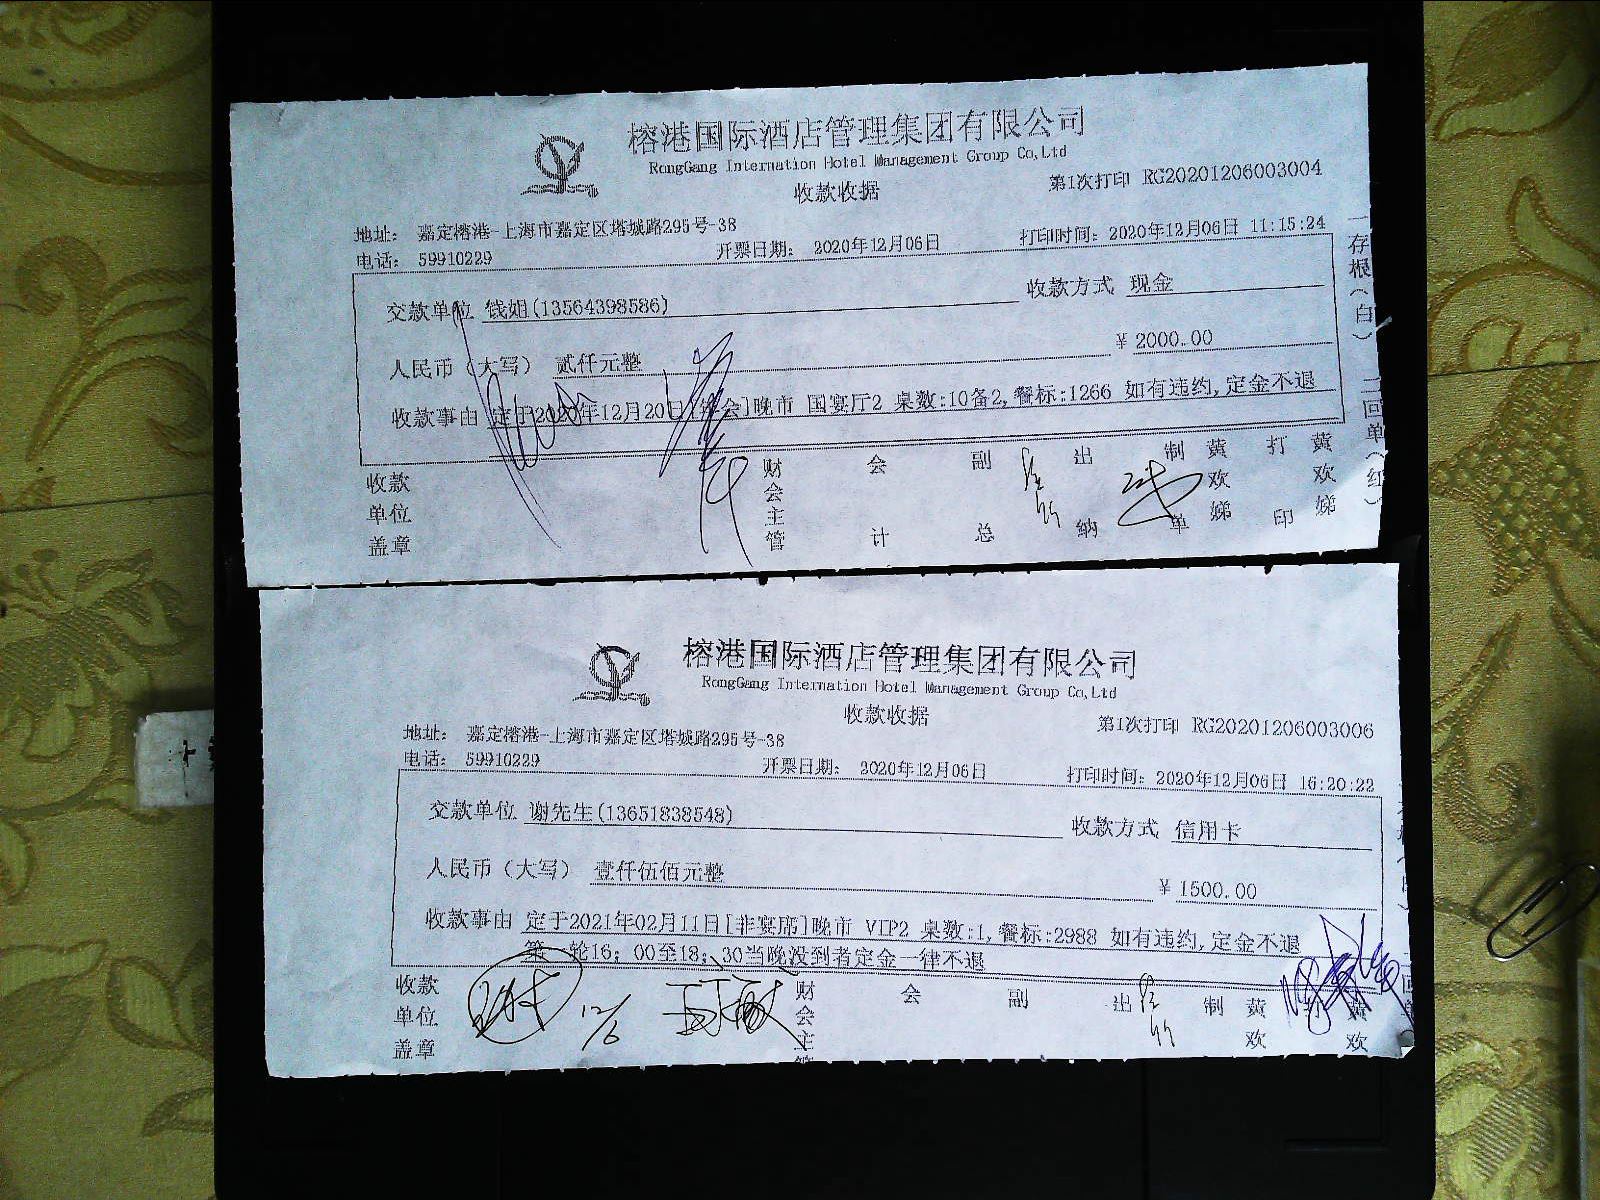 榕港国际酒店管理集团有限公司
RongGang Internation Hotel Management Group Co,Ltd
收款收据
第1次打印 RG20201206003004
地址: 嘉定榕港-上海市嘉定区塔城路295号-38
电话: 59910229
开票日期: 2020年12月06日
打印时间: 2020年12月06日 11:15:24
交款单位 钱姐(13564398586)
收款方式 现金
人民币（大写） 贰仟元整
¥ 2000.00
收款事由 定于2020年12月20日[年会]晚市 国宴厅2 桌数:10备2,餐标:1266 如有违约,定金不退
收款单位盖章 财会主管 会计 副总 出纳 制单 黄欢娣 打印 黄欢娣
一存根(白) 二回单(红)
榕港国际酒店管理集团有限公司
RongGang Internation Hotel Management Group Co,Ltd
收款收据
第1次打印 RG20201206003006
地址: 嘉定榕港-上海市嘉定区塔城路295号-38
电话: 59910229
开票日期: 2020年12月06日
打印时间: 2020年12月06日 16:20:22
交款单位 谢先生(13651838548)
收款方式 信用卡
人民币（大写） 壹仟伍佰元整
¥ 1500.00
收款事由 定于2021年02月11日[非宴席]晚市 VIP2 桌数:1,餐标:2988 如有违约,定金不退
第一轮16; 00至18; 30当晚没到者定金一律不退
收款单位盖章 12/6 财会主管 会 副 出 制 黄欢 黄欢